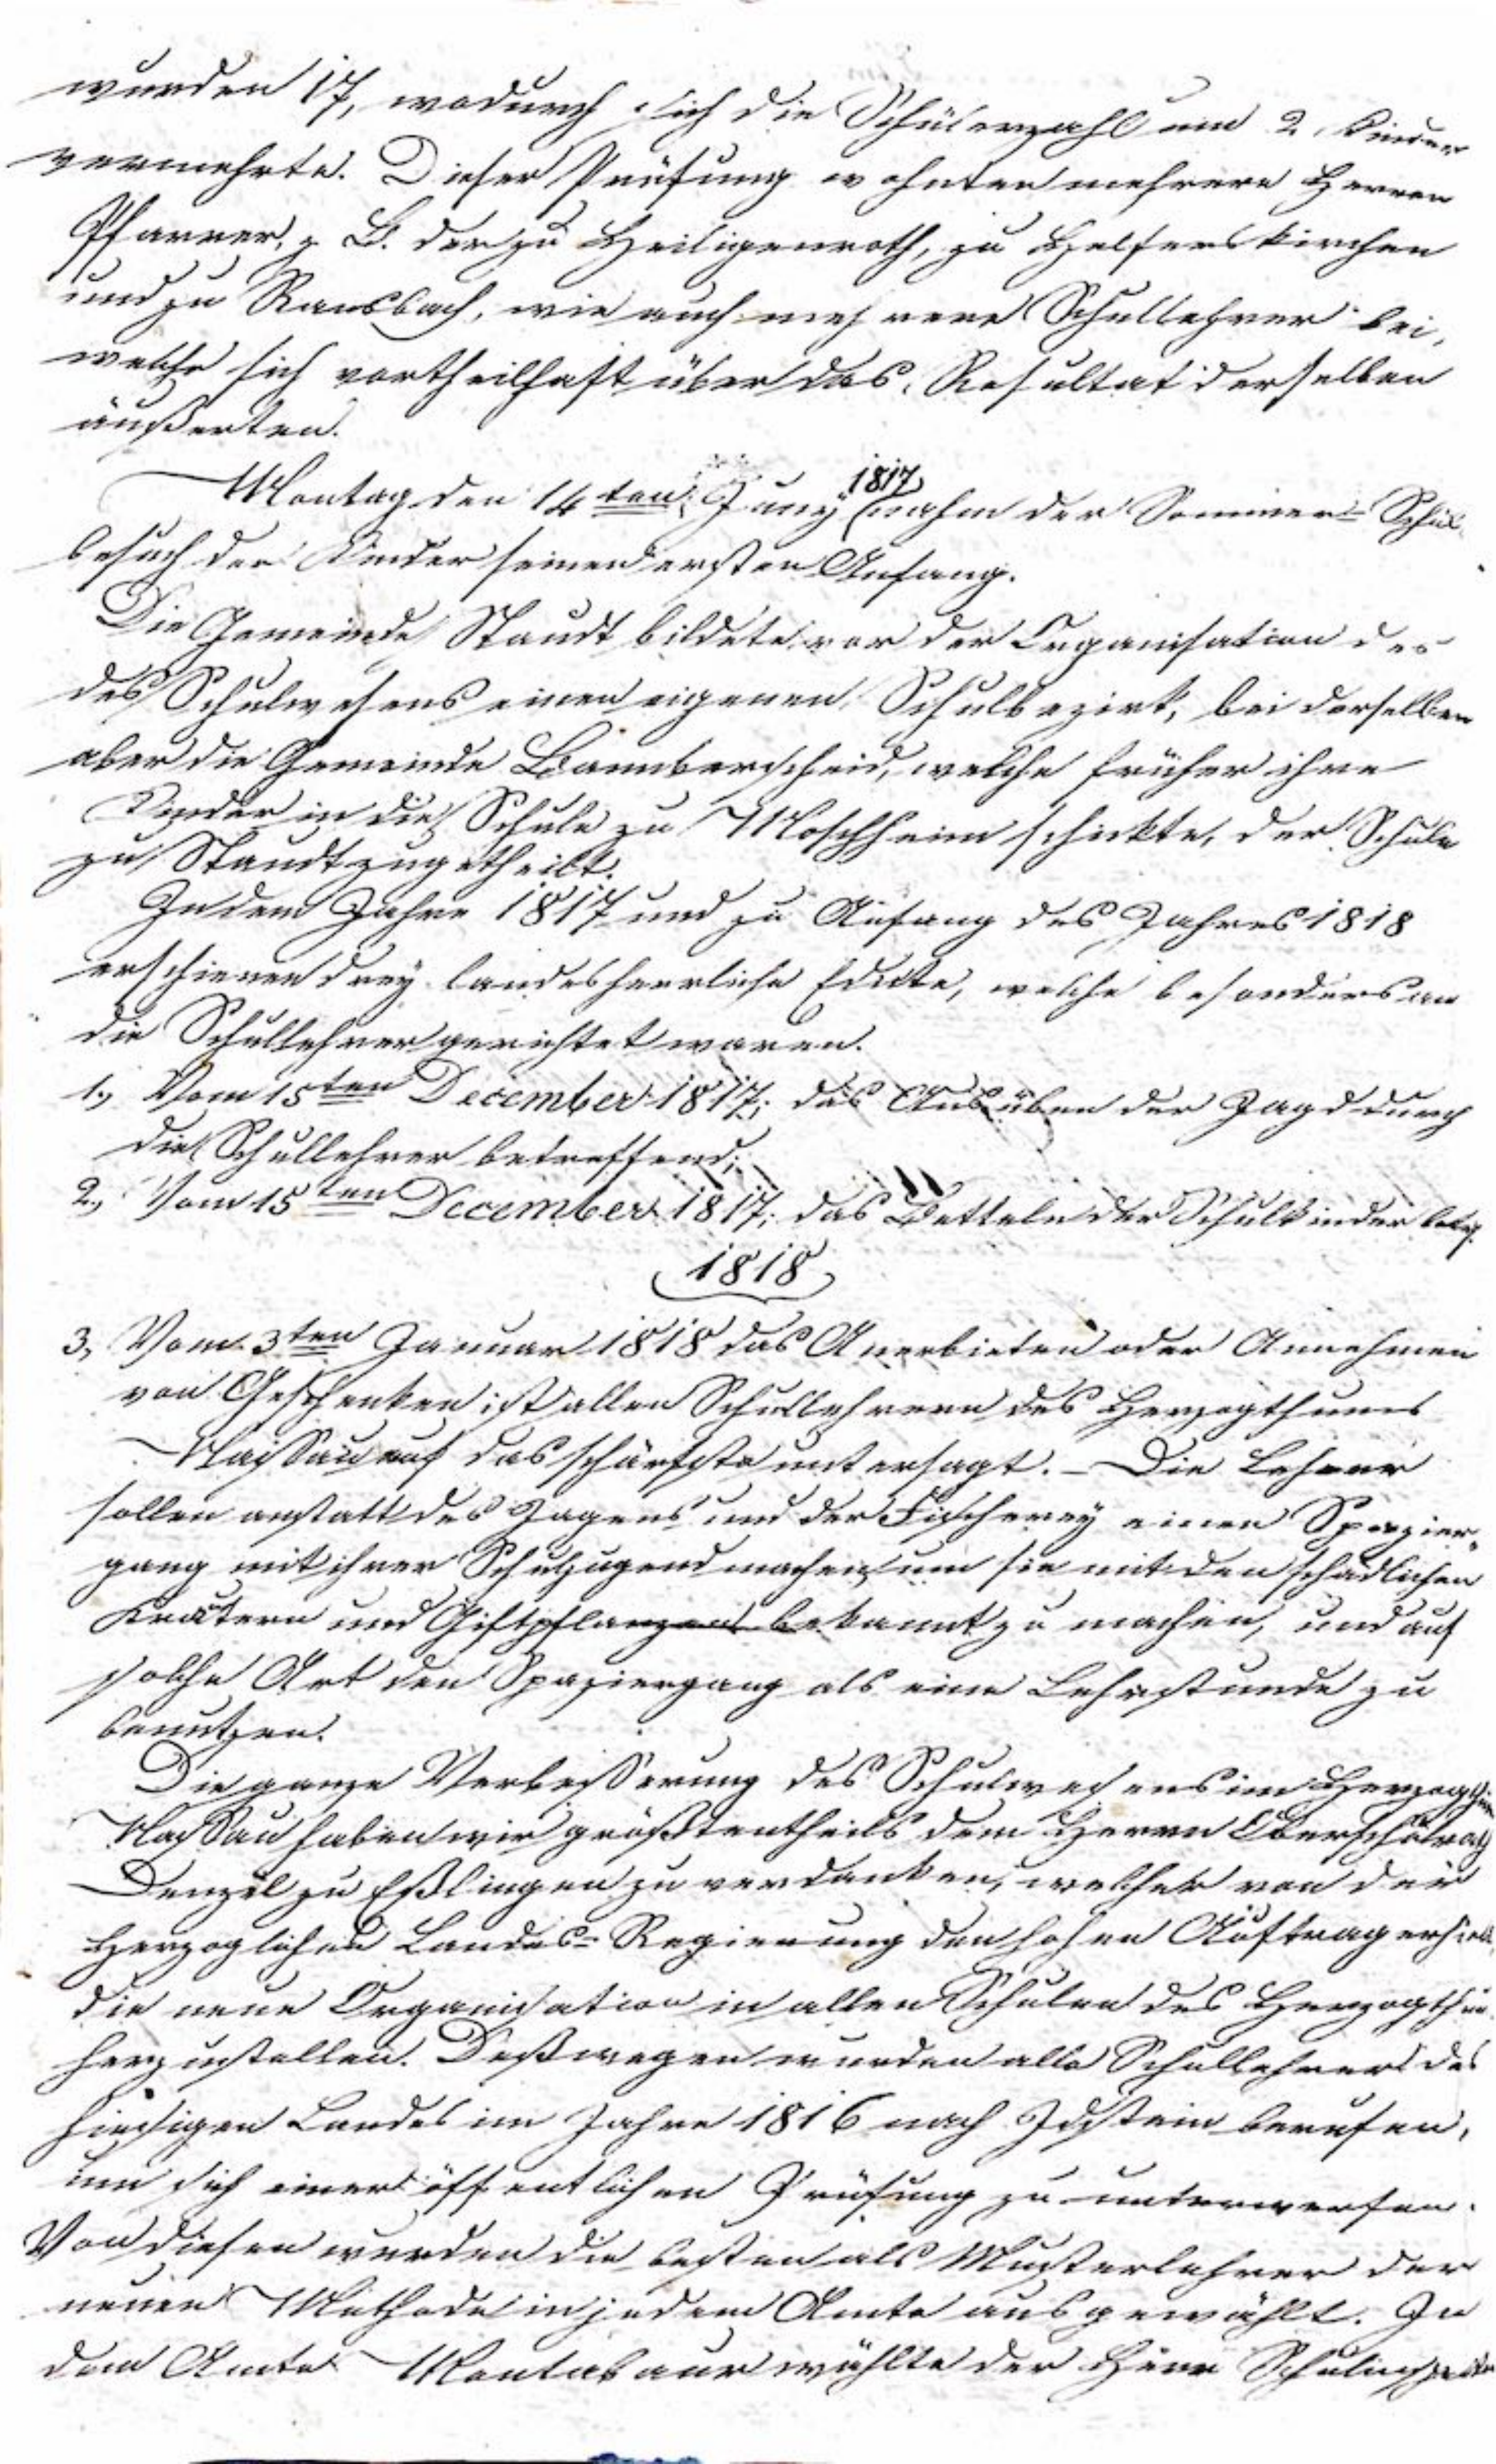 wurden 17, wodurch sich die Schülerzahl um 2 Kinder
vermehrte. Dieser Prüfung wohnten mehrere Herren
Pfarrer, z. B. der zu Heiligenroth, zu Helferskirchen
und zu Ransbach, wie auch mehrere Schullehrer bei,
welche sich vortheilhaft über das Resultat derselben
äußerten.
Montag den 14ten Juny 1817 nahm der Sommer-Schul-
besuch der Kinder seinen ersten Anfang.
Die Gemeinde Staudt bildete vor der Organisation des
des Schulwesens einen eigenen Schulbezirk, bei derselben
aber die Gemeinde Bannberscheid, welche früher ihre
Kinder in die Schule zu Moschheim schickte, der Schule
zu Staudt zugetheilt.
In dem Jahre 1817 und zu Anfang des Jahres 1818
erschienen drey landesherrliche Edicte, welche besonders an
die Schullehrer gerichtet waren.
1., Vom 15ten December 1817; das Ausüben der Jagd durch
die Schullehrer betreffend;
2., Vom 15ten December 1817; das Betteln der Schulkinder betrf.
1818
3, Vom 3ten Januar 1818 das Anerbieten oder Annehmen
von Geschenken ist allen Schullehrern des Herzogthums
Nassau auf das schärfste untersagt. – Die Lehrer
sollen anstatt des Jagens und der Fischerey einen Spazier-
gang mit ihrer Schuljugend machen, um sie mit den schädlichen
Kräutern und Giftpflanzen bekannt zu machen, und auf
solche Art den Spaziergang als eine Lehrstunde zu
benutzen.
Die ganze Verbesserung des Schulwesens im Herzogthum
Nassau haben wir größtentheils dem Herrn Oberschulrath
Denzel zu Eßlingen zu verdanken, welcher von der
Herzoglichen Landes-Regierung den hohen Auftrag erhielt,
die neue Organisation in allen Schulen des Herzogthums
herzustellen. Deßwegen wurden alle Schullehrer des
hiesigen Landes im Jahre 1816 nach Idstein berufen,
um sich einer öffentlichen Prüfung zu unterwerfen.
Von diesen wurden die besten als Musterlehrer der
neuen Methode in jedem Amte ausgewählt. In
dem Amte Montabaur wählte der Herr Schulinspector